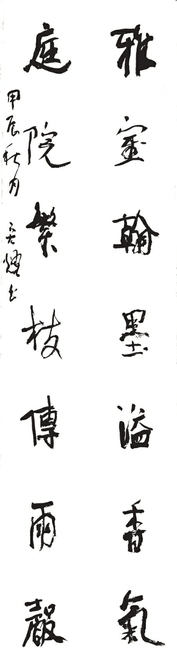 雅室翰墨溢香氣
庭院繁枝傳雨聲
甲辰秋月